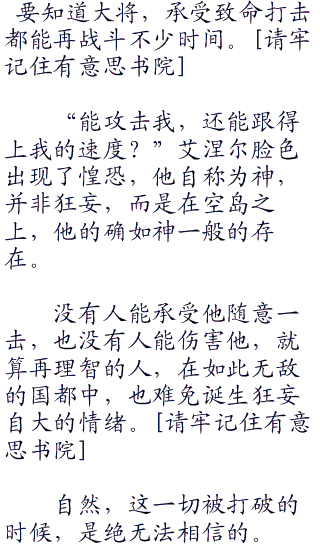 要知道大将，承受致命打击
都能再战斗不少时间。[请牢
记住有意思书院]
“能攻击我，还能跟得
上我的速度？”艾涅尔脸色
出现了惶恐，他自称为神，
并非狂妄，而是在空岛之
上，他的确如神一般的存
在。
没有人能承受他随意一
击，也没有人能伤害他，就
算再理智的人，在如此无敌
的国都中，也难免诞生狂妄
自大的情绪。[请牢记住有意
思书院]
自然，这一切被打破的
时候，是绝无法相信的。